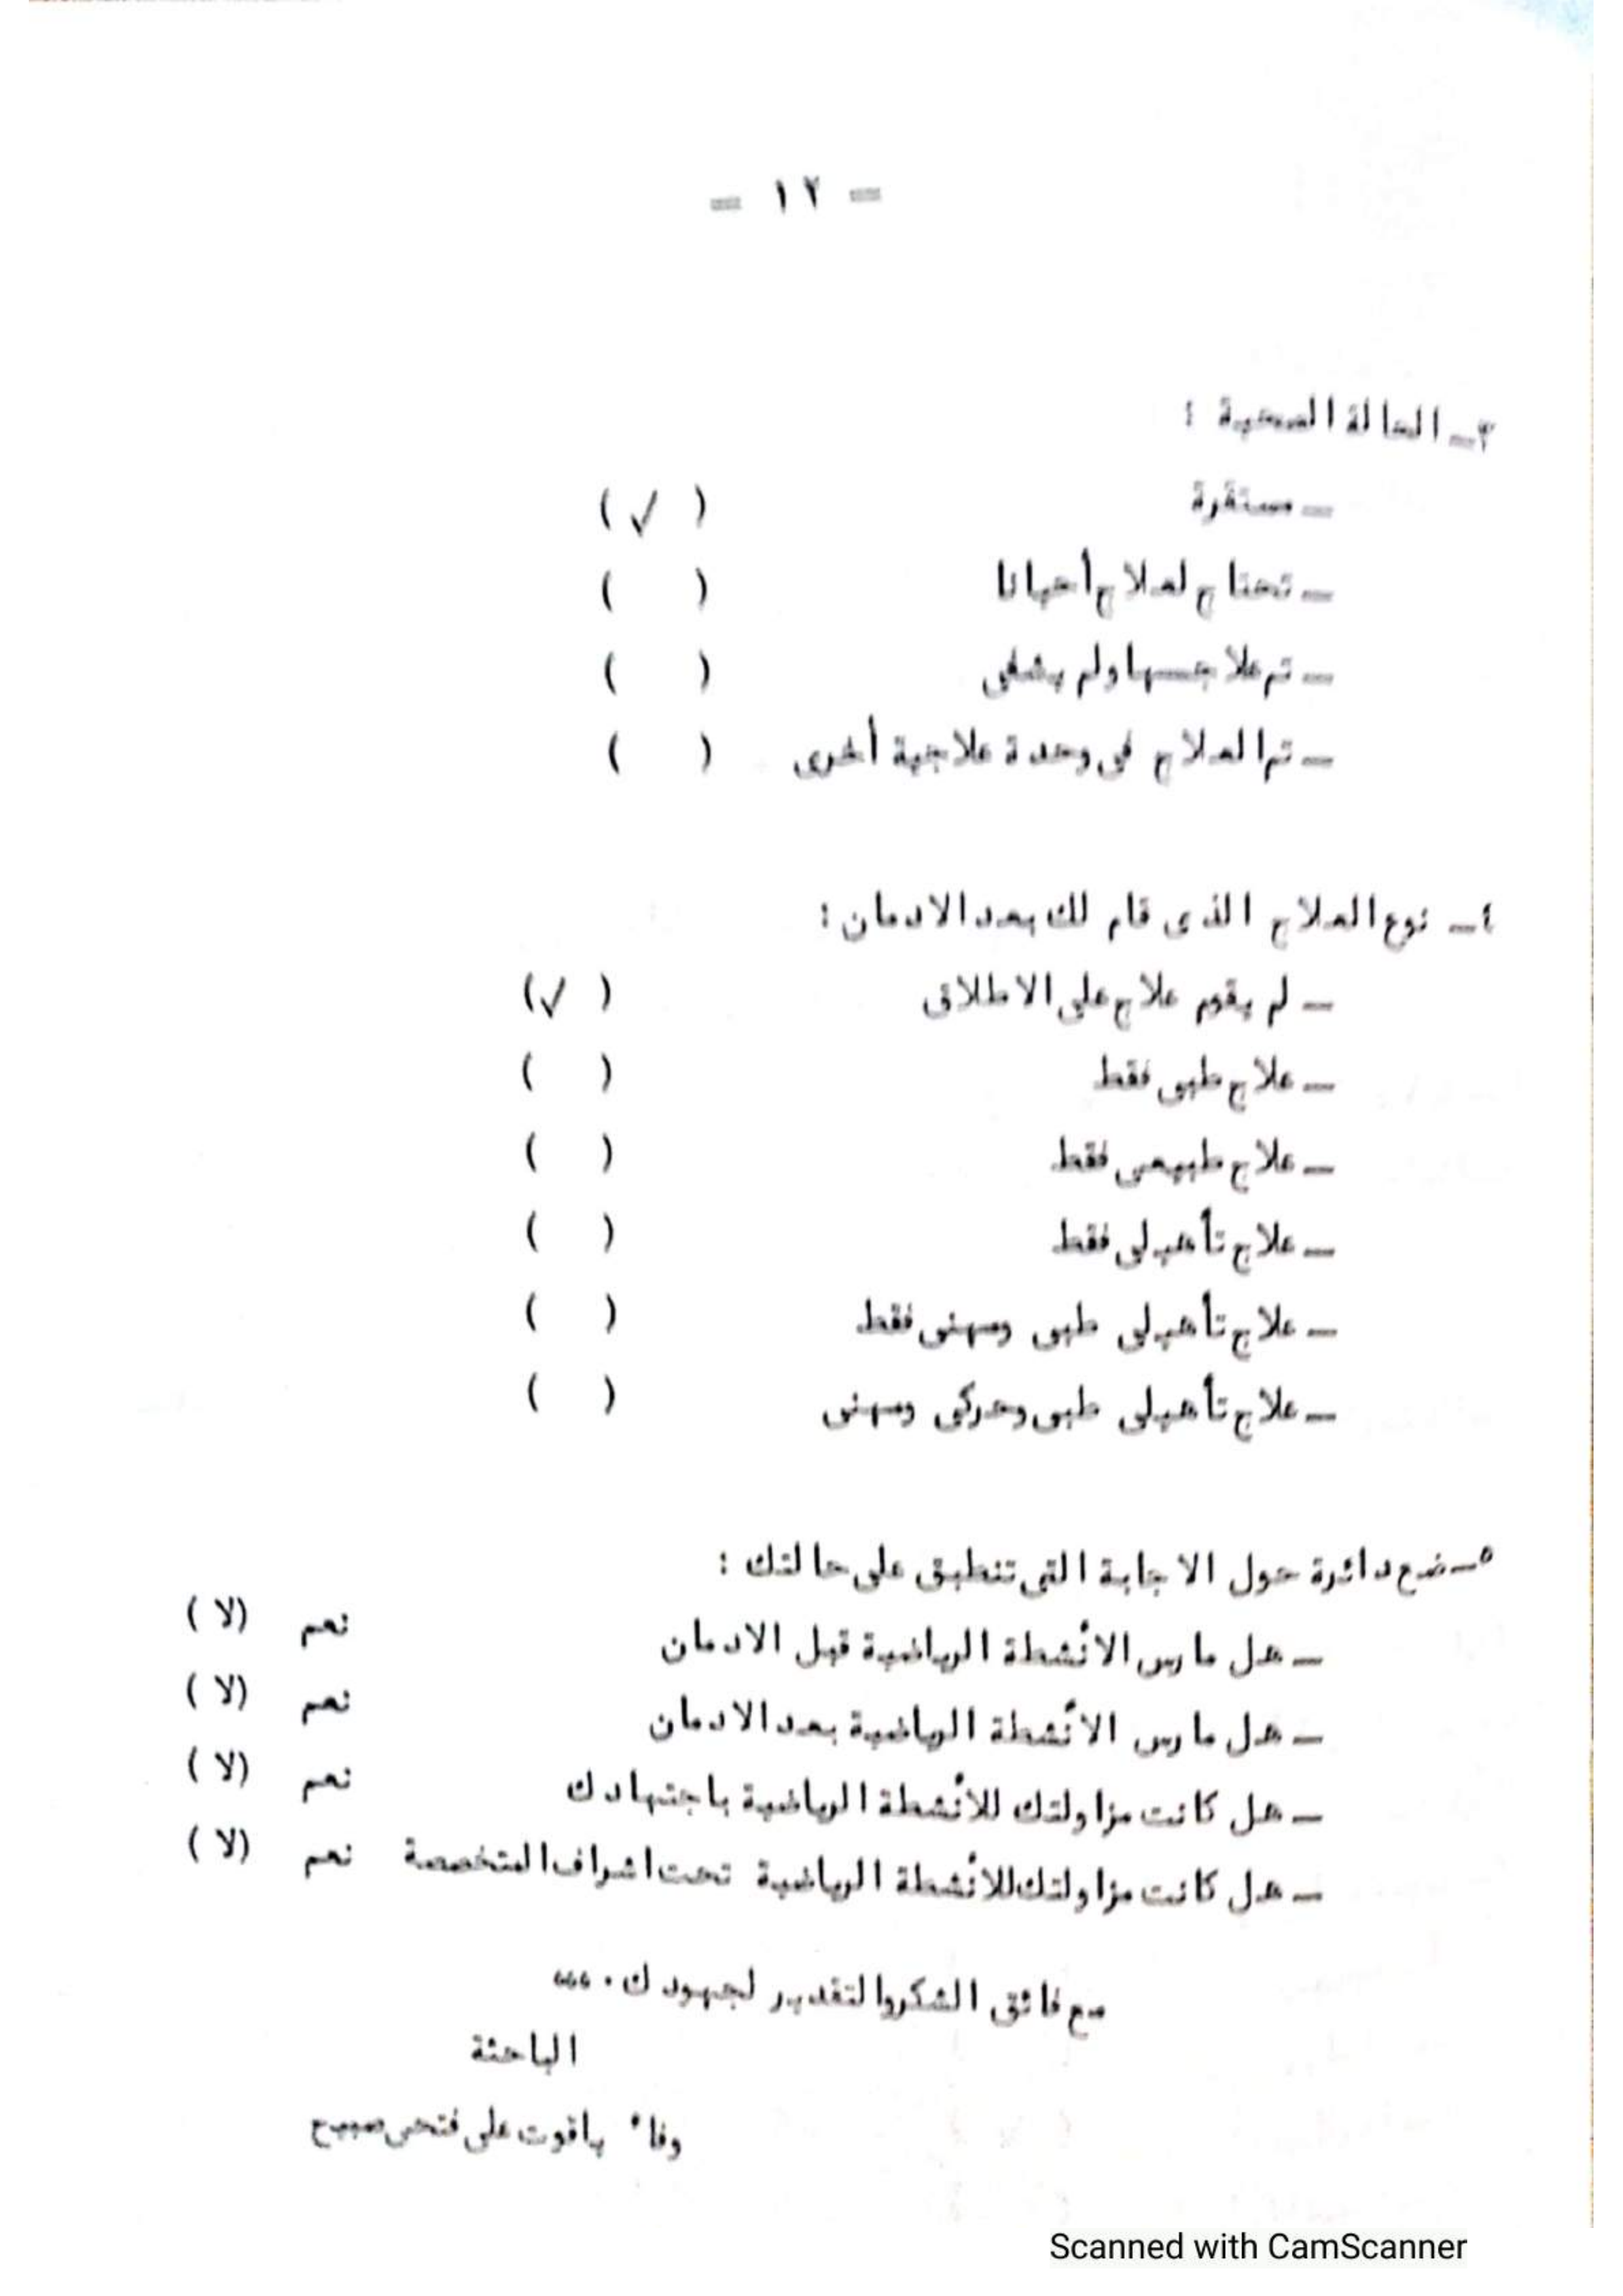 = ١٢ =
٣ـ الحالة الصحية :
ـ مستقرة ( √ )
ـ تحتاج لعلاج أحيانا ( )
ـ تم علاجـها ولم يشفى ( )
ـ تم العلاج فى وحدة علاجية أخرى ( )
٤ـ نوع العلاج الذى قام لك بعد الادمان :
ـ لم يقوم علاج على الاطلاق ( √ )
ـ علاج طبى فقط ( )
ـ علاج طبيعى فقط ( )
ـ علاج تأهيلى فقط ( )
ـ علاج تأهيلى طبى ومهنى فقط ( )
ـ علاج تأهيلى طبى وحركى ومهنى ( )
٥ـ ضع دائرة حول الاجابة التى تنطبق على حالتك :
ـ هل مارس الأنشطة الرياضية قبل الادمان نعم (لا )
ـ هل مارس الأنشطة الرياضية بعد الادمان نعم (لا )
ـ هل كانت مزاولتك للأنشطة الرياضية باجتهادك نعم (لا )
ـ هل كانت مزاولتك للأنشطة الرياضية تحت اشراف المتخصصة نعم (لا )
مع فائق الشكر والتقدير لجهودك . ،،،
الباحثة
وفاء ياقوت على فتحى صبيح
Scanned with CamScanner